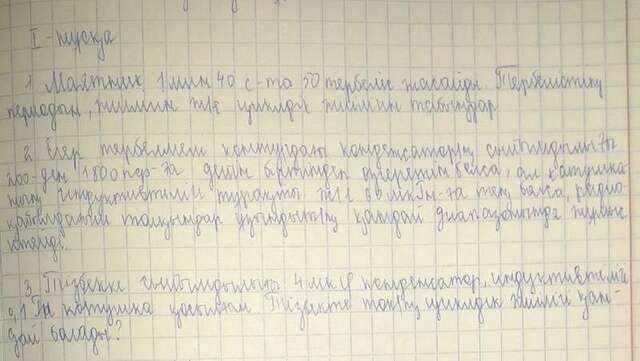 I - нұсқа
1. Маятник 1 мин 40 с-та 50 тербеліс жасайды. Тербелістің
периодын, жиілігін т/е циклдік жиілігін табыңдар
2. Егер тербелмелі контурдағы конденсатордың сыйымдылығы
-ден 1800 пФ-ға дейін біртіндеп өзгеретін болса, ал катушка
ның индуктивтілігі тұрақты 60 мкГн-ға тең болса, радио
қабылдағыш толқындар ұзындықтың қандай диапазонында жұмыс
істейді.
3. Тізбекке сыйымдылығы 4 мкФ конденсатор, индуктивтілігі
0,1 Гн катушка қосылған. Тізбекте токтың циклдік жиілігі қан-
дай болады?